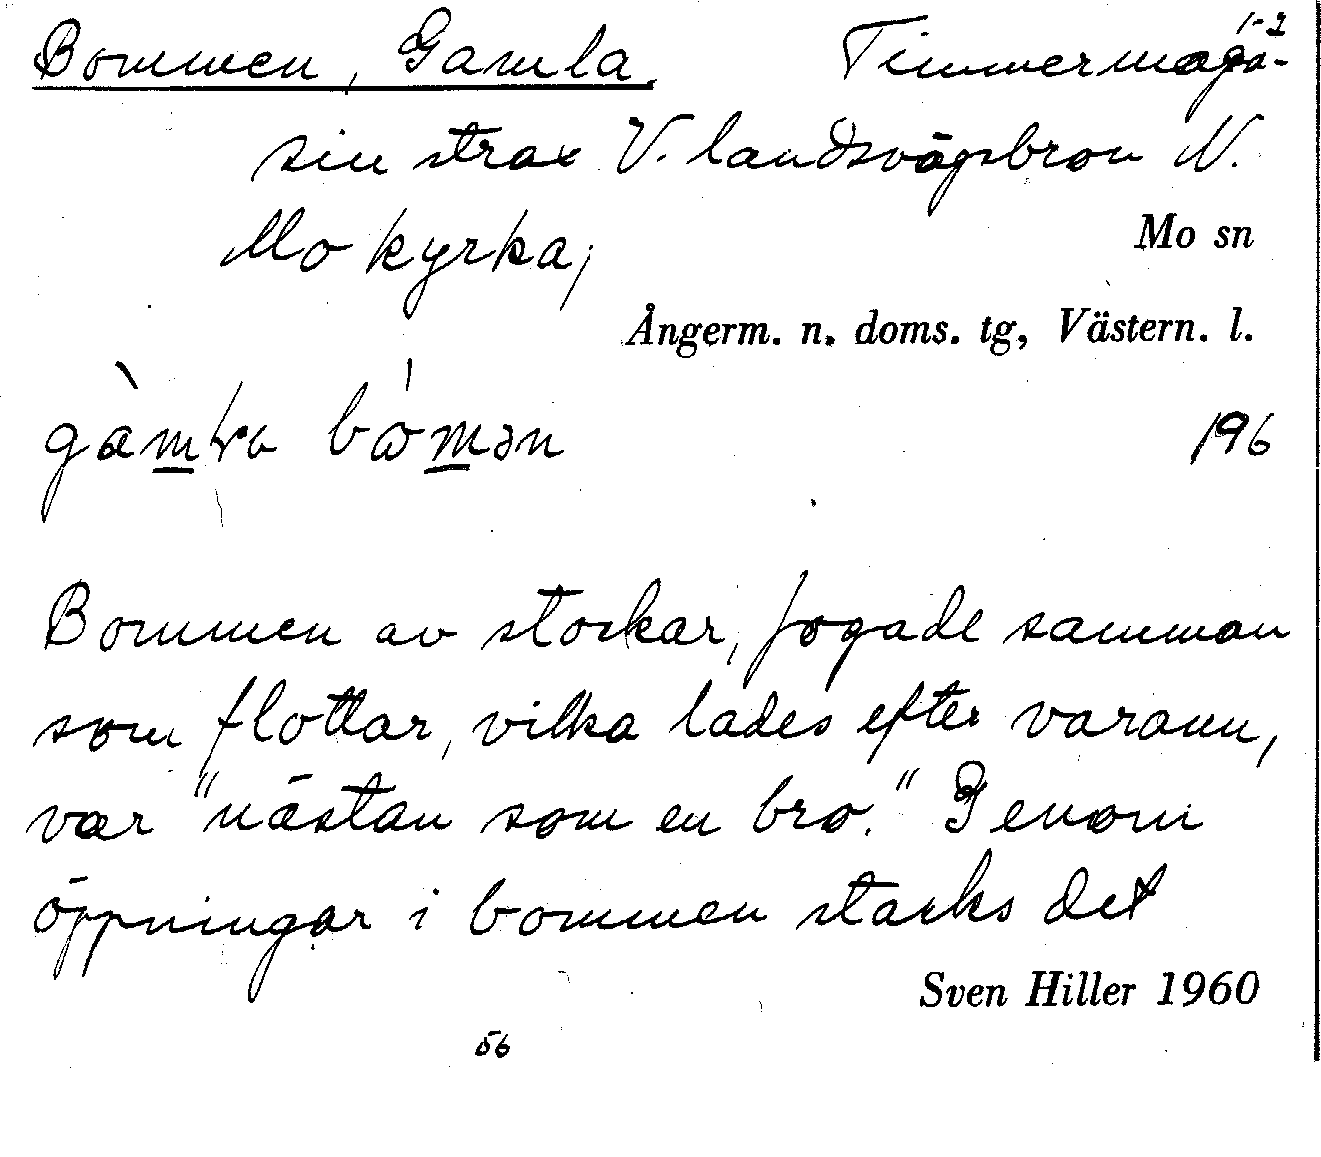 1-2
Bommen, Gamla. Timmermaga-
sin strax V. landsvägsbron N.
Mo kyrka;
Mo sn
Ångerm. n. doms. tg, Västern. l.
196
Bommen av stockar, fogade samman
som flottar, vilka lades efter varann,
var "nästan som en bro." Genom
öppningar i bommen stacks det
Sven Hiller 1960
56